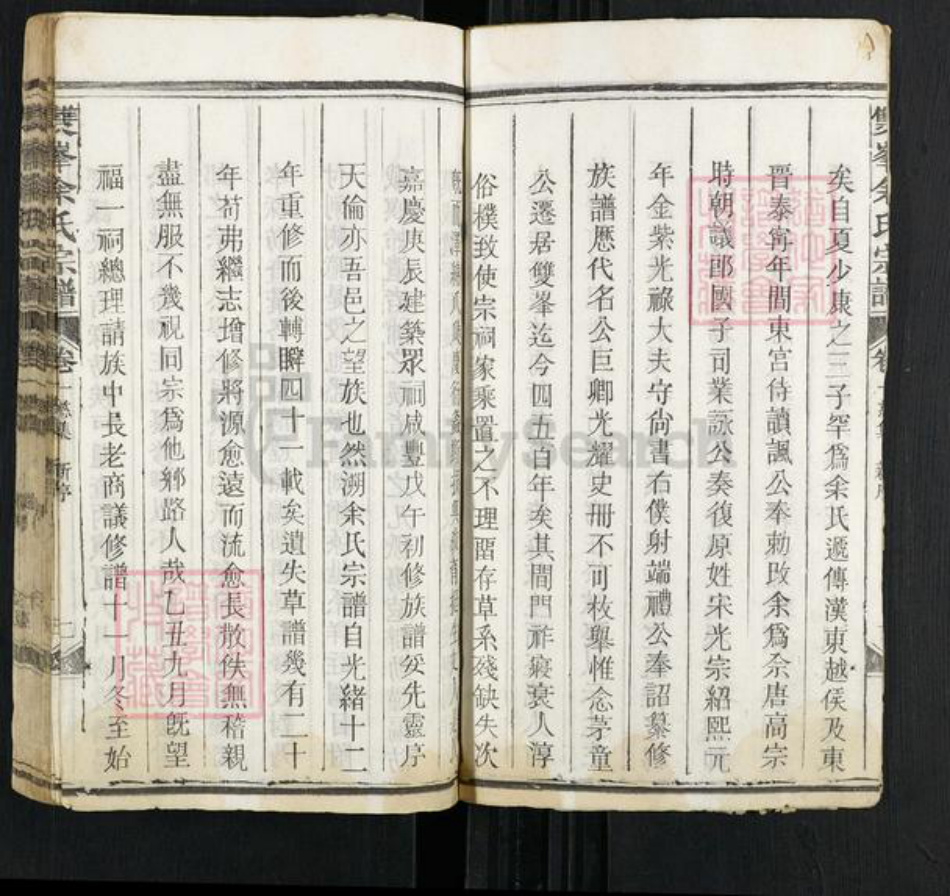 雙峯余氏宗譜
卷一
矣自夏少康之三子罕爲余氏遞傳漢東越侯及東
晉泰寧年間東宮侍讀諷公奉勅改余爲佘唐高宗
時朝議郎國子司業詠公奏復原姓宋光宗紹熙元
年金紫光祿大夫守尙書右僕射端禮公奉詔纂修
族譜歷代名公巨卿光耀史冊不可枚舉惟念茅童
公遷居雙峯迄今四五百年矣其間門祚寖衰人淳
俗樸致使宗祠家乘置之不理畱存草系殘缺失次
嘉慶庚辰建築眾祠咸豐戊午初修族譜妥先靈序
天倫亦吾邑之望族也然溯余氏宗譜自光緒十二
年重修而後轉瞬四十一載矣遺失草譜幾有二十
年苟弗繼志增修將源愈遠而流愈長散佚無稽親
盡無服不幾視同宗爲他鄕路人哉乙丑九月旣望
福一祠總理請族中長老商議修譜十一月冬至始
雙峯余氏宗譜
卷一
新序
FamilySearch